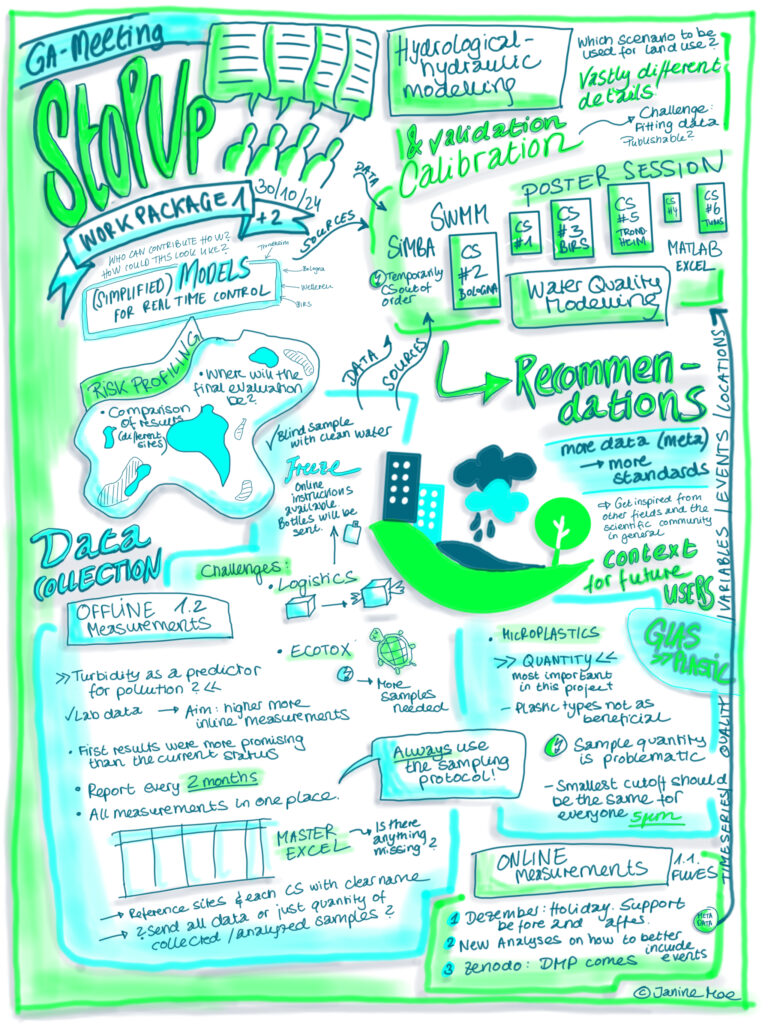 GA-Meeting
StoPUp
WORK PACKAGE 1
+2
30/10/24
WHO CAN CONTRIBUTE HOW?
HOW COULD THIS LOOK LIKE?
(SIMPLIFIED) MODELS
FOR REAL TIME CONTROL
Trondheim
Bologna
BIRS
Hydrological-
hydraulic
modelling
Which scenario to be
used for land use?
Vastly different
details
Challenge:
Fitting data
Publishable?
& validation
Calibration
DATA
SOURCES
POSTER SESSION
SiMBA
Temporarily
CS out of
order
SWMM
CS
#2
BOLOGNA
CS
#1
CS
#3
BIRS
CS
#5
TROND
HEIM
CS
#4
CS
#6
TUNIS
MATLAB
EXCEL
Water Quality
Modelling
RISK PROFILING
• Where will the
final evaluation
be?
• Comparison
of results
(different
sites)
DATA
SOURCES
Recommen-
dations
more data (meta)
→ more
standards
⇒ Get inspired from
other fields and the
scientific community
in general
context
for future
USERS
✓ Blind sample
with clean water
Freeze
Online
instructions
available.
Bottles will be
sent.
Data
COLLECTION
Challenges:
• Logistics
• ECOTOX
→ More
samples
needed
OFFLINE 1.2
Measurements
>> Turbidity as a predictor
for pollution? <<
✓ Lab data → Aim: higher more
inline measurements
• First results were more promising
than the current status
• Report every 2 months
• All measurements in one place.
Always use
the sampling
protocol!
MASTER
EXCEL
→ Is there
anything
missing?
→ Reference sites & each CS with clear name
→ ? Send all data or just quantity of
collected / analyzed samples?
• MICROPLASTICS
>> QUANTITY <<
most important
in this project
- Plastic types not as
beneficial
Sample quantity
is problematic
- Smallest cutoff should
be the same for
everyone 5µm
PLASTIC
TIMESERIES QUALITY VARIABLES / EVENTS / LOCATIONS
ONLINE
Measurements
1.1.
FLUVES
1 Dezember: Holiday. Support
before and after.
2 New Analyses on how to better
include
events
3 Zenodo: DMP comes
META
DATA
© Janine Mae